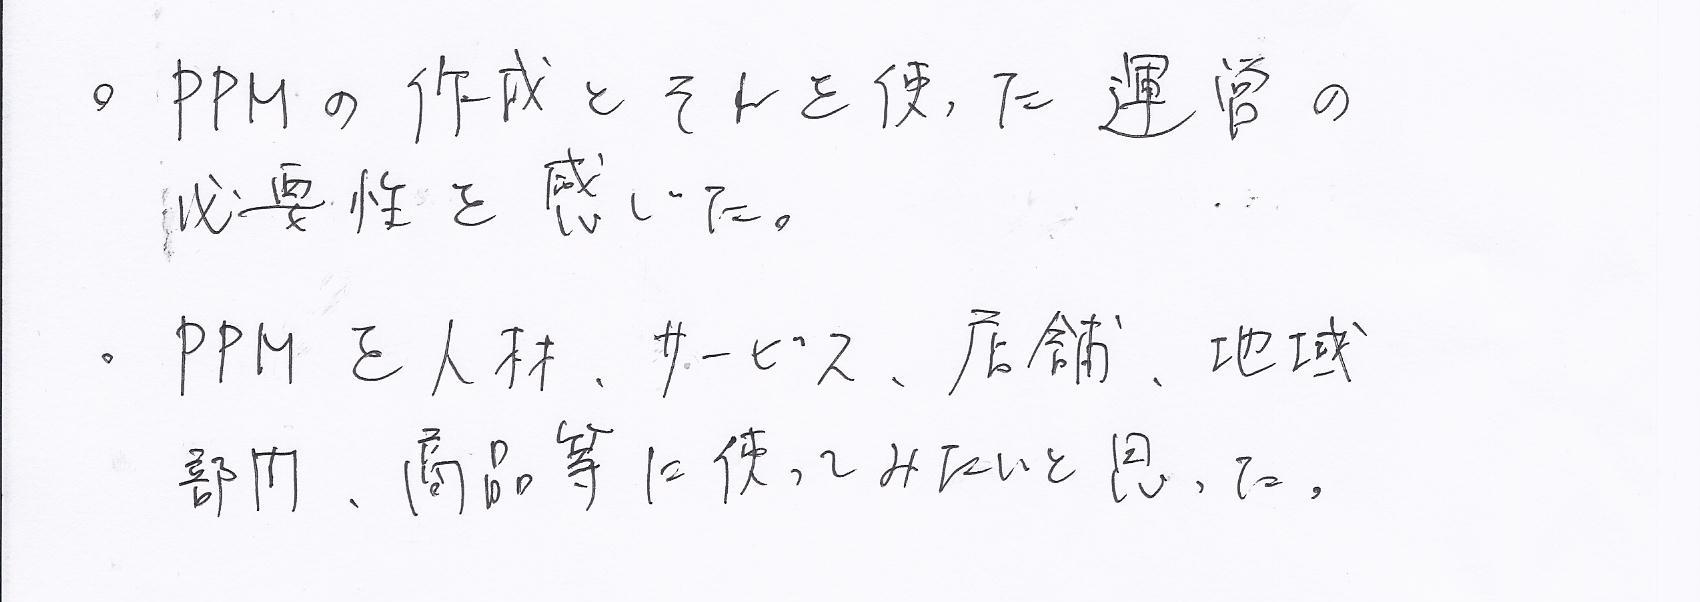 。PPMの作成とそれを使った運営の
必要性を感じた。
・PPMを人材、サービス、店舗、地域
部門、商品等に使ってみたいと思った。